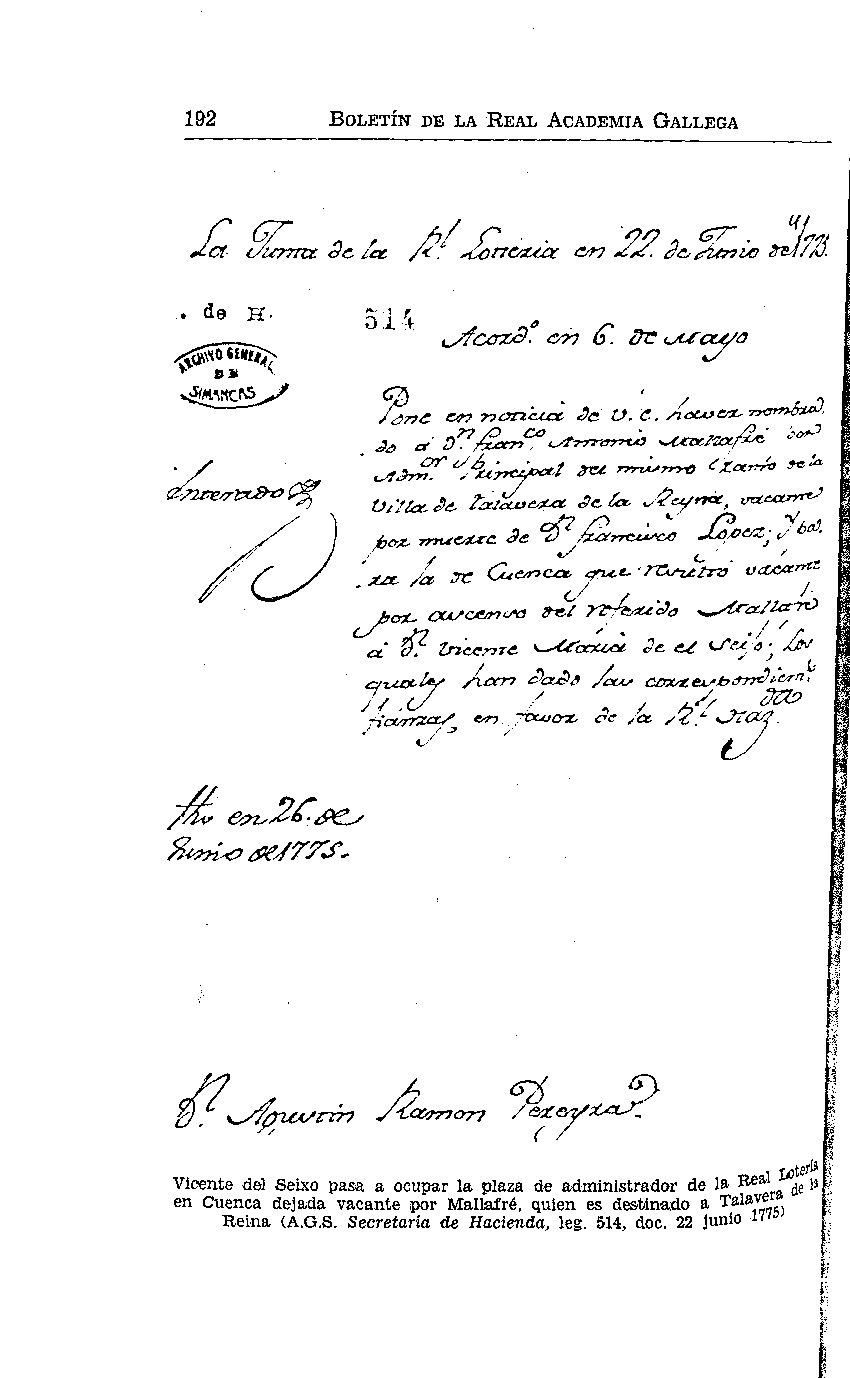 192 BOLETÍN DE LA REAL ACADEMIA GALLEGA
La Junta de la Rl. Lotteria en 22. de Junio de 1775.
. de H. 514
Acordo. en 6. de Mayo
ARCHIVO GENERAL
DE
SIMANCAS
Pone en noticia de V. E. haver nombra
do á Dn. Franco. Antonio Mallafré por
Admor. Principal del mismo Ramo de la
Villa de Talavera de la Reyna, vacante
Enterado
por muerte de Dn. Francisco Lopez; y pa
ra la de Cuenca que resultó vacante
por ascenso del referido Mallafré
á Dn. Vicente María de el Seijo; Los
quales han dado las correspondientes
fianzas, en favor de la Rl. Hazda.
fho en 26. de
Junio de 1775.
Dn. Agustin Ramon Pereyra.
Vicente del Seixo pasa a ocupar la plaza de administrador de la Real Lotería
en Cuenca dejada vacante por Mallafré, quien es destinado a Talavera de la
Reina (A.G.S. Secretaría de Hacienda, leg. 514, doc. 22 junio 1775)